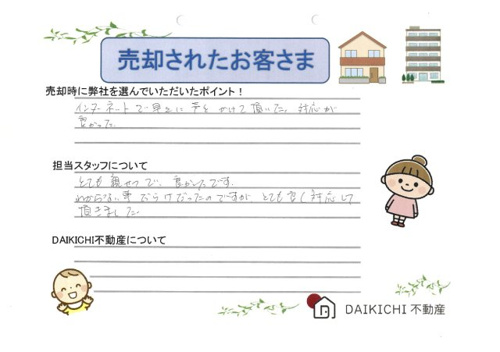 売却されたお客さま
売却時に弊社を選んでいただいたポイント！
インターネットで見て 声を かけて頂いた。対応が
良かった
担当スタッフについて
とても親せつで、良かったです。
わからない事だらけだったのですが とても良く対応して
頂きました
DAIKICHI不動産について
DAIKICHI 不動産